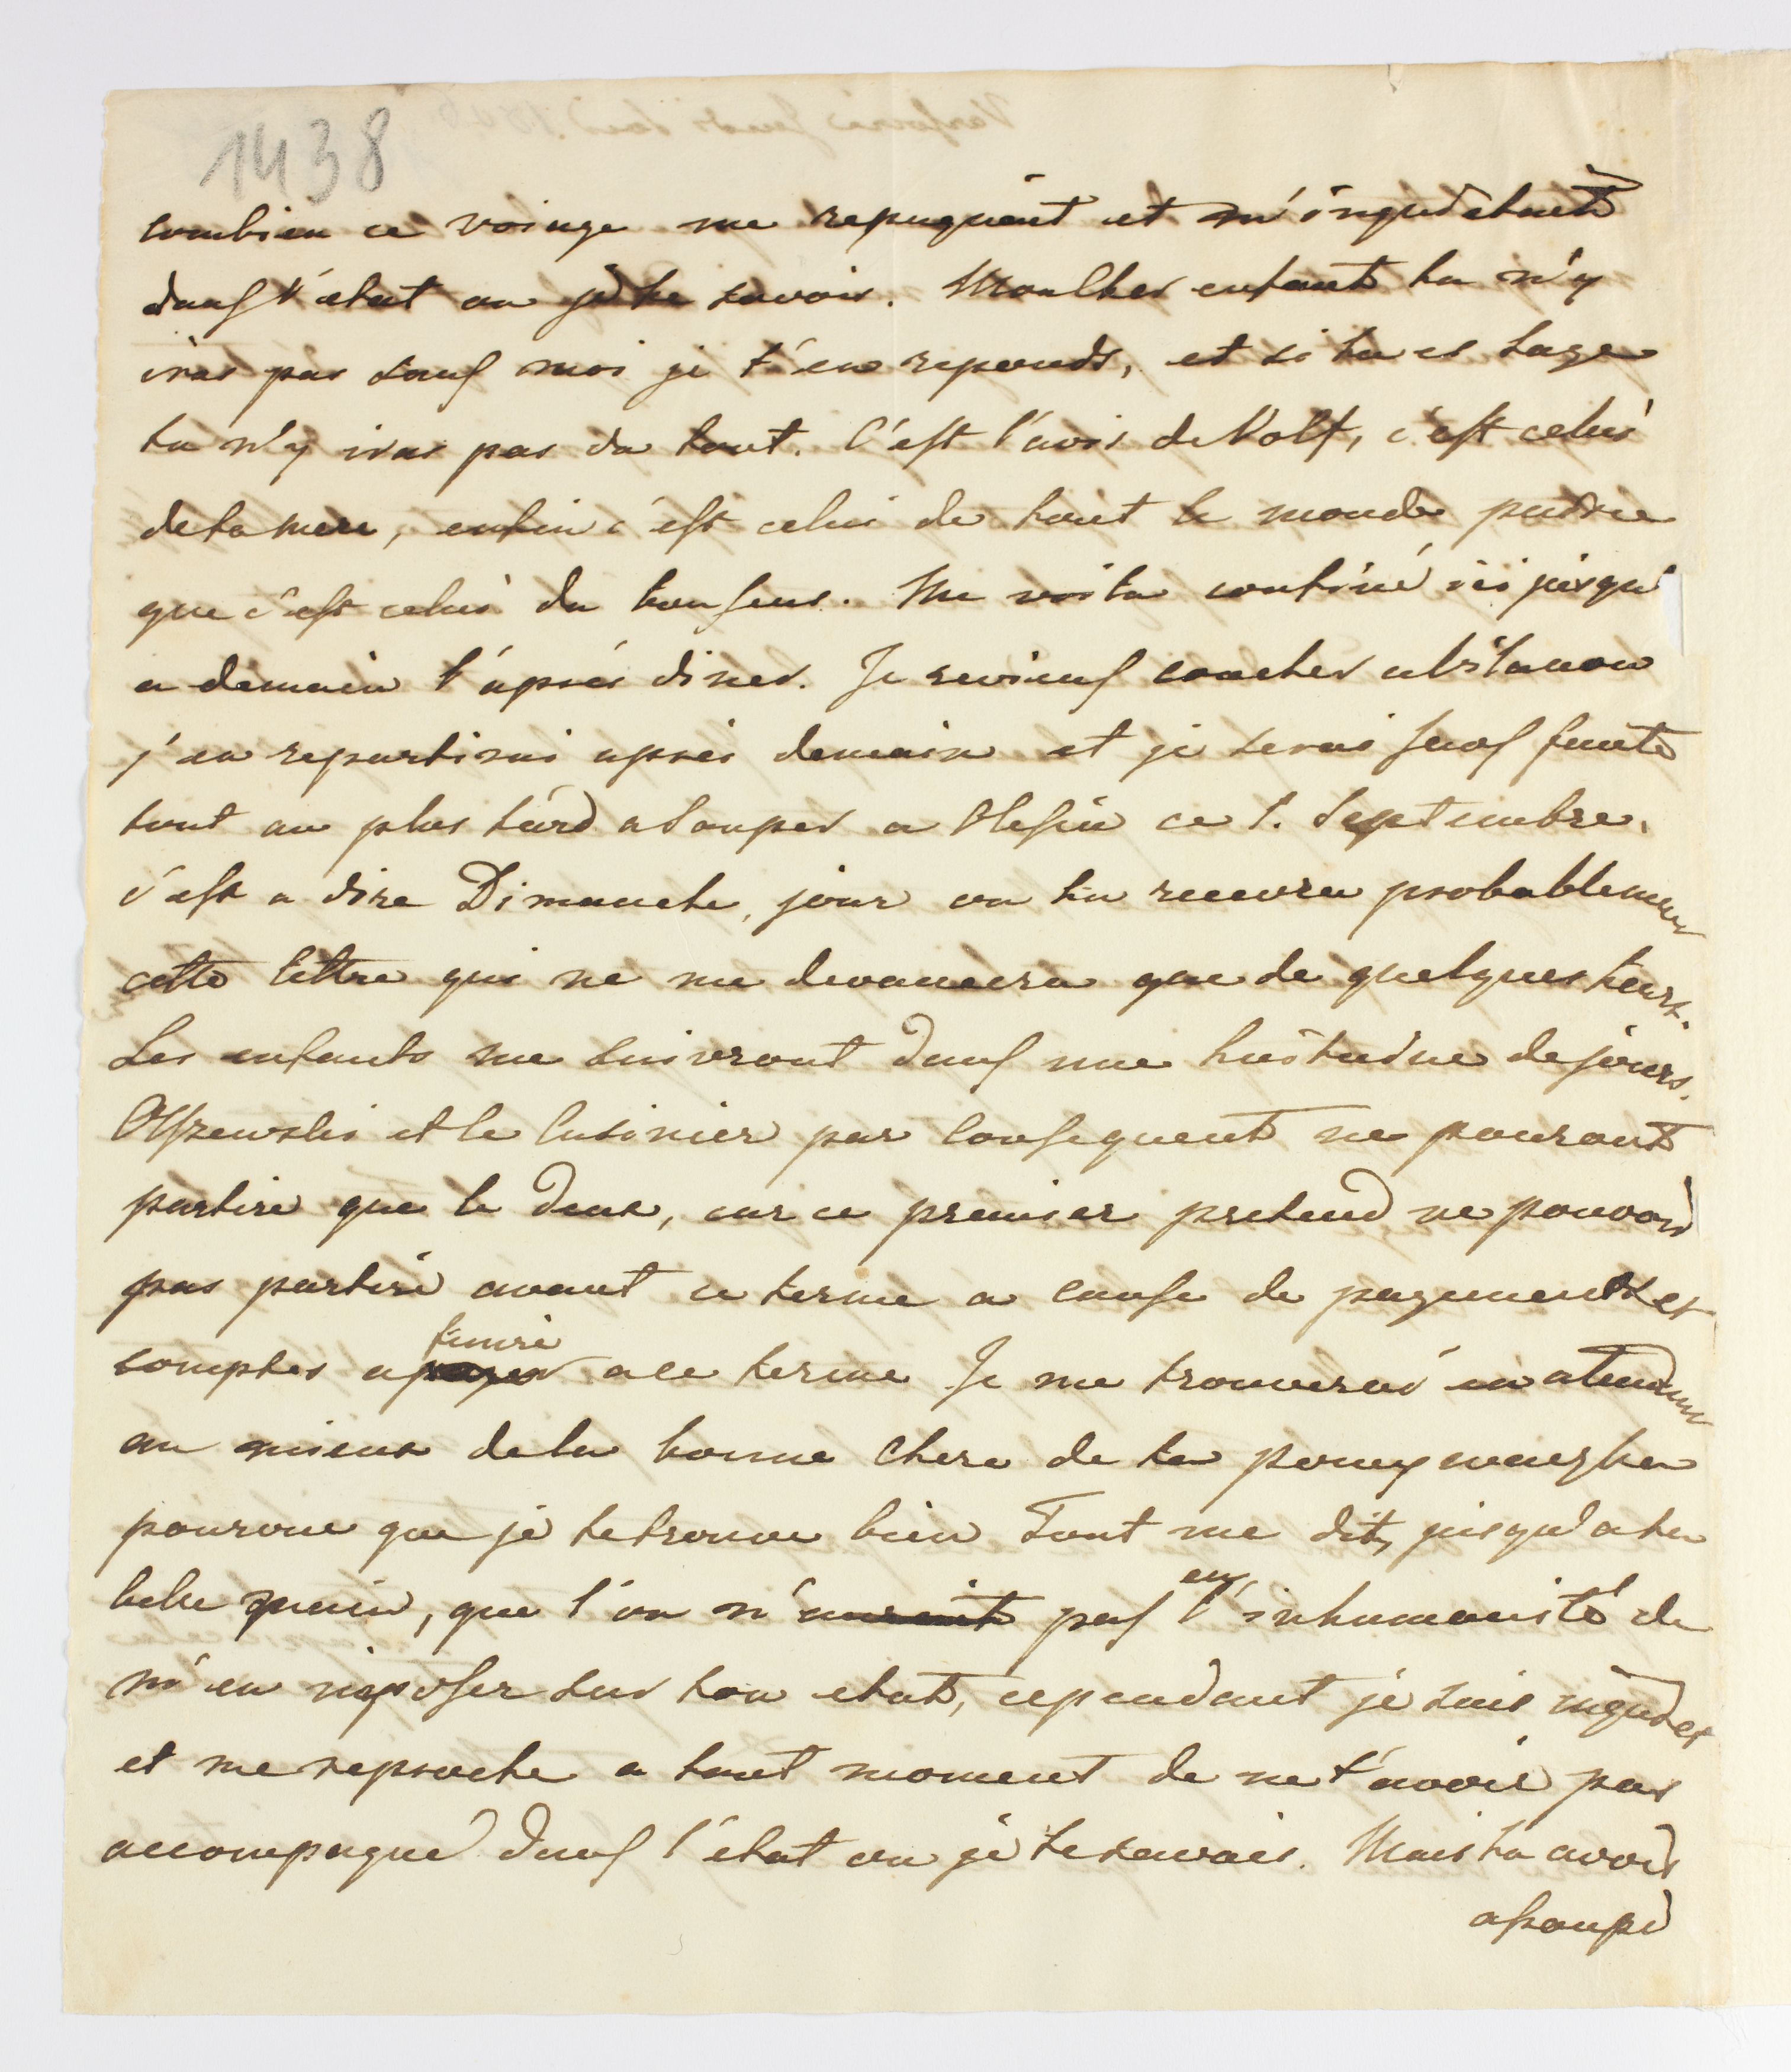 1438
combien ce voiage me repugnait et m'inquietait
dans l'etat ou je te savois. Mon cher enfant tu n'y
iras pas sans moi je t'en reponds, et si tu es sage
tu n'y iras pas du tout. C'est l'avis de Wolf, c'est celui
de ta mere, enfin c'est celui de tout le monde
que c'est celui du bon sens. Me voila confiné ici jusqu'
a demain l'aprés diner. Je reviens coucher a
j'en repartirai aprés demain et je serai sans faute
tout au plus tard a souper a Olesin ce 1. Septembre,
c'est a dire Dimanche, jour ou tu recevra probablement
cette lettre qui ne me devancera que de quelques heurs.
Les enfants me suivront dans une huitaine de jours.
Olszewski et le Cusinier par consequent ne pouront
partire que le deux, car ce premier pretend ne pouvoir
pas partire avant ce terme a cause de payements et
comptes a finire a ce terme Je me trouverai en atendant
au mieux de la bonne chere de ta
pourvue que je te trouve bien Tout me dit, jusqu'a ta
belle main, que l'on n'a pas eu l'inhumanité de
m'en imposer sur ton etat, cependant je suis inquiet
et me reproche a tout moment de ne t'avoir pas
accompagné dans l'etat ou je te savais. Mais tu avois
a